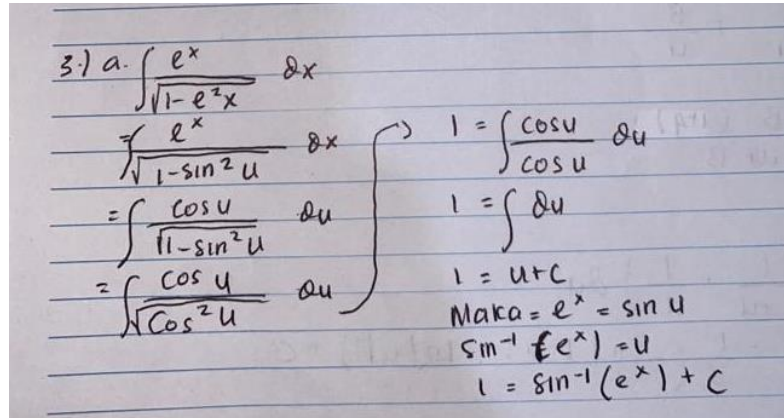 3.) a. ∫ e^x / √(1-e^2x) dx
= ∫ e^x / √(1-sin² u) dx
= ∫ cos u / √(1-sin² u) du
= ∫ cos u / √(cos² u) du
1 = ∫ cos u / cos u du
1 = ∫ du
1 = u+c
Maka = e^x = sin u
sin⁻¹ (e^x) = u
1 = sin⁻¹ (e^x) + C